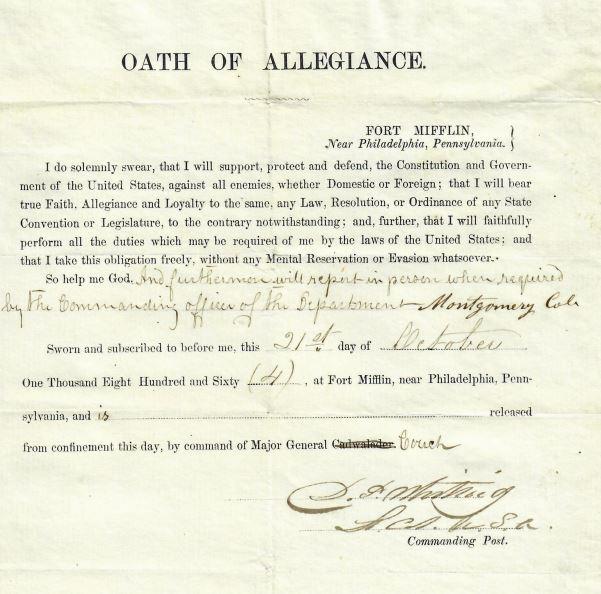 OATH OF ALLEGIANCE.
FORT MIFFLIN,
Near Philadelphia, Pennsylvania.
I do solemnly swear, that I will support, protect and defend, the Constitution and Govern-
ment of the United States, against all enemies, whether Domestic or Foreign; that I will bear
true Faith, Allegiance and Loyalty to the same, any Law, Resolution, or Ordinance of any State
Convention or Legislature, to the contrary notwithstanding; and, further, that I will faithfully
perform all the duties which may be required of me by the laws of the United States; and
that I take this obligation freely, without any Mental Reservation or Evasion whatsoever.
So help me God. And furthermore will report in person when required
by the Commanding officer of the Department Montgomery Cole
Sworn and subscribed to before me, this 21st day of October
One Thousand Eight Hundred and Sixty (4), at Fort Mifflin, near Philadelphia, Penn-
sylvania, and is released
from confinement this day, by command of Major General Cadwalader. Couch
U.S.A.
Commanding Post.